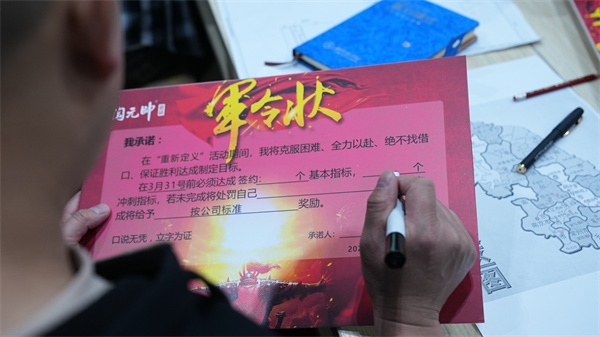 元帅
軍令状
我承诺：
在“重新定义”活动期间，我将克服困难、全力以赴、绝不找借
口、保证胜利达成制定目标。
在3月31号前必须达成 签约：______个 基本指标，______个
冲刺指标，若未完成将处罚自己______
成将给予___按公司标准___奖励。
口说无凭，立字为证 承诺人：